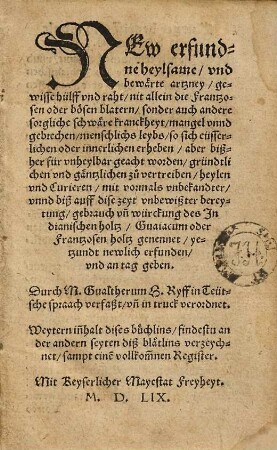 NEw erfund-
ne heylsame/ vnd
bewårte artzney/ ge-
wisse hülff vnd raht/ nit allein die Frantzo-
sen oder bôsen blatern/ sonder auch andere
sorgliche schwåre kranckheyt/ mangel vnnd
gebrechen/ menschlichs leybs/ so sich eüsser-
lichen oder innerlichen erheben/ aber biß-
her für vnheylbar geacht worden/ gründtli
chen vnd gåntzlichen zů vertreiben/ heylen
vnd Curieren/ mit vormals vnbekandter/
vnnd biß auff dise zeyt vnbewißter berey-
tung/ gebrauch vñ würckung des In
dianischen holtz/ Guaiacum oder
Frantzosen holtz genennet/ ye-
tzundt newlich erfunden/
vnd an tag geben.
Durch M. Gualtherum H. Ryff in Teüt-
sche spraach verfaßt/ vñ in truck verordnet.
Weytern iñhalt dises bůchlins/ findestu an
der andern seyten diß blåtlins verzeych-
net/ sampt einẽ vollkom̃nen Register.
Mit Keyserlicher Mayestat Freyheyt.
M. D. LIX.